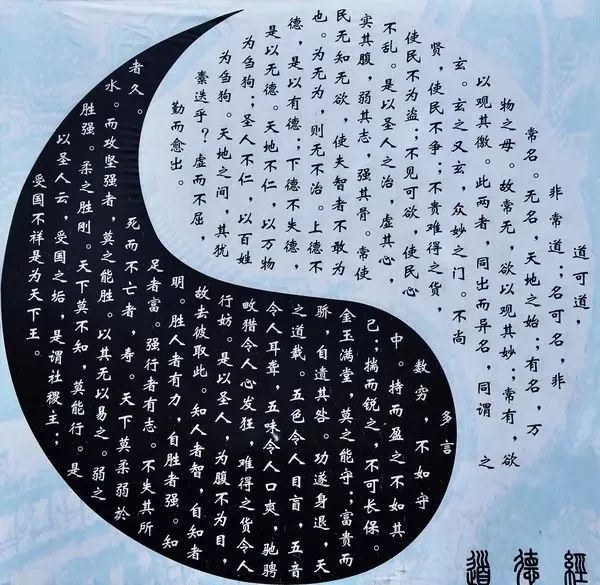 道可道，
非常道；名可名，非
常名。无名，天地之始；有名，万
物之母。故常无，欲以观其妙；常有，欲
以观其徼。此两者，同出而异名，同谓之
玄。玄之又玄，众妙之门。不尚
贤，使民不争；不贵难得之货，
使民不为盗；不见可欲，使民心
不乱。是以圣人之治，虚其心，
实其腹，弱其志，强其骨。常使
民无知无欲，使夫智者不敢为
也。为无为，则无不治。上德不
德，是以有德；下德不失德，
是以无德。天地不仁，以万物
为刍狗；圣人不仁，以百姓
为刍狗。天地之间，其犹
素迭乎？虚而不屈，
勤而愈出。
多言
数穷，不如守
中。持而盈之不如其
己；揣而锐之，不可长保。
金玉满堂，莫之能守；富贵而
骄，自遗其咎。功遂身退，天
之道哉。五色令人目盲，五音
令人耳聋，五味令人口爽，驰骋
畋猎令人心发狂，难得之货令人
行妨。是以圣人，为腹不为目，
故去彼取此。知人者智，自知者
明。胜人者有力，自胜者强。知
足者富。强行者有志。不失其所
者久。死而不亡者，寿。天下莫柔弱於
水。而攻坚强者，莫之能胜。以其无以易之。弱之
胜强。柔之胜刚。天下莫不知，莫能行。是
以圣人云，受国之垢，是谓社稷主；
受国不祥是为天下王。
道德經